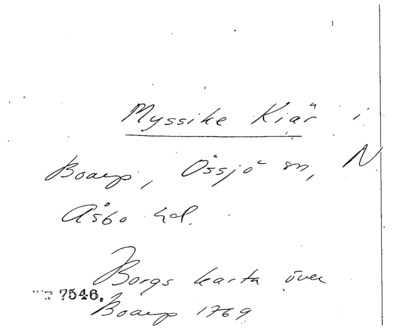 Myssike Kiär i
Boarp, Össjö sn, N
Åsbo hd.
Borgs karta över
7546.
Boarp 1769